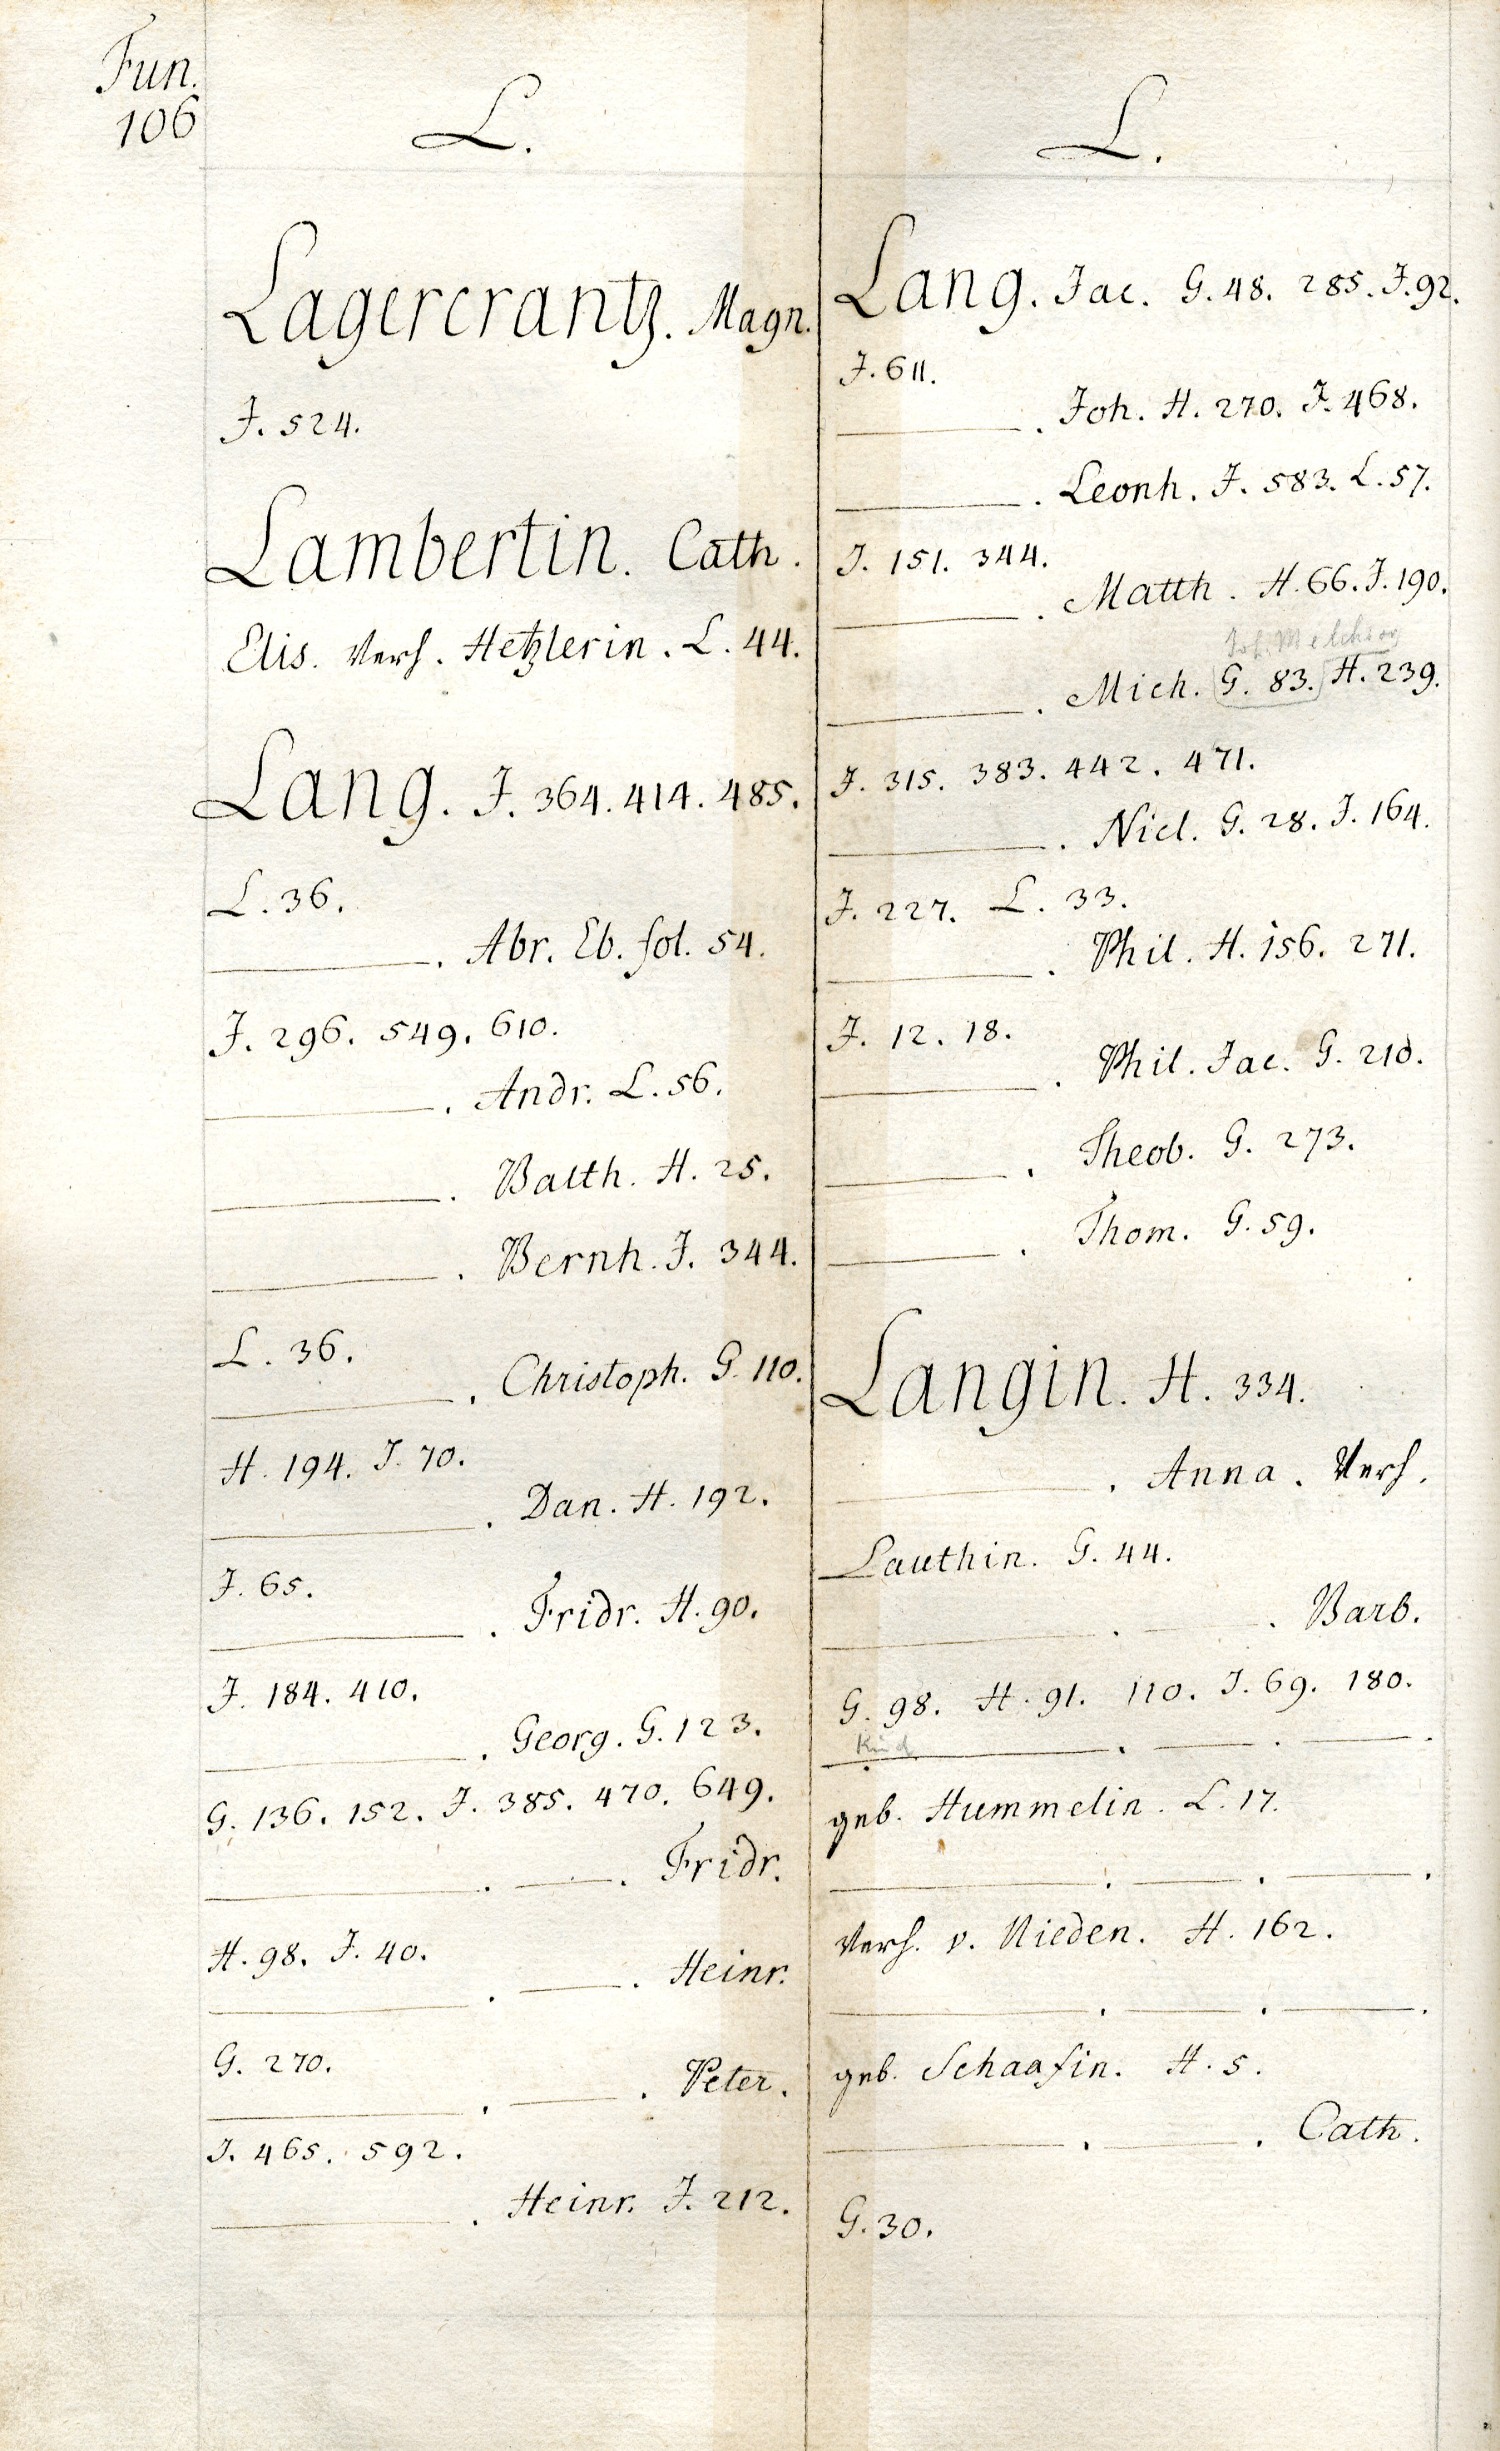 Fun.
106
L.
Lagercrantz. Magn.
J. 524.
Lambertin. Cath.
Elis. Verh. Hetzlerin. L. 44.
Lang. J. 364. 414. 485.
L. 36.
———. Abr. Eb. fol. 54.
J. 296. 549. 610.
———. Andr. L. 56.
———. Balth. H. 25.
———. Bernh. J. 344.
L. 36.
———. Christoph. G. 110.
H. 194. J. 70.
———. Dan. H. 192.
J. 65.
———. Fridr. H. 90.
J. 184. 410.
———. Georg. G. 123.
G. 136. 152. J. 385. 470. 649.
———. ———. Fridr.
H. 98. J. 40.
———. ———. Heinr.
G. 270.
———. ———. Peter.
J. 465. 592.
———. Heinr. J. 212.
L.
Lang. Jac. G. 48. 285. J. 92.
J. 611.
———. Joh. H. 270. J. 468.
———. Leonh. J. 583. L. 57.
J. 151. 344.
———. Matth. H. 66. J. 190.
Joh. Melchior
———. Mich. G. 83. H. 239.
J. 315. 383. 442. 471.
———. Nicl. G. 28. J. 164.
J. 227. L. 33.
———. Phil. H. 156. 271.
J. 12. 18.
———. Phil. Jac. G. 210.
———. Theob. G. 273.
———. Thom. G. 59.
Langin. H. 334.
———. Anna. Verh.
Lauthin. G. 44.
———. ———. Barb.
G. 98. H. 91. 110. J. 69. 180.
Kind
———. ———. ———.
geb. Hummelin. L. 17.
———. ———. ———.
Verh. v. Nieden. H. 162.
———. ———. ———.
geb. Schaafin. H. 5.
———. ———. Cath.
G. 30.